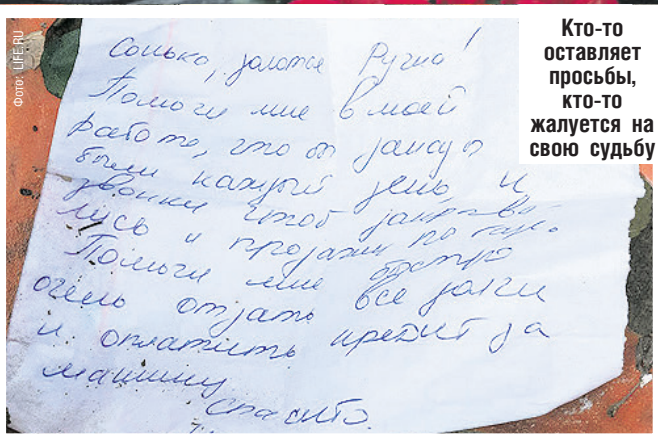 Фото: LIFE.RU
Кто-то
оставляет
просьбы,
кто-то
жалуется на
свою судьбу
Сонька, золотая Ручка!
Помоги мне в моей
работе, что бы заказы
были каждый день, и
звонки чтоб
лись и продажи по
Помоги мне быстро
очень отдать все долги
и оплатить кредит за
машину
спасибо.